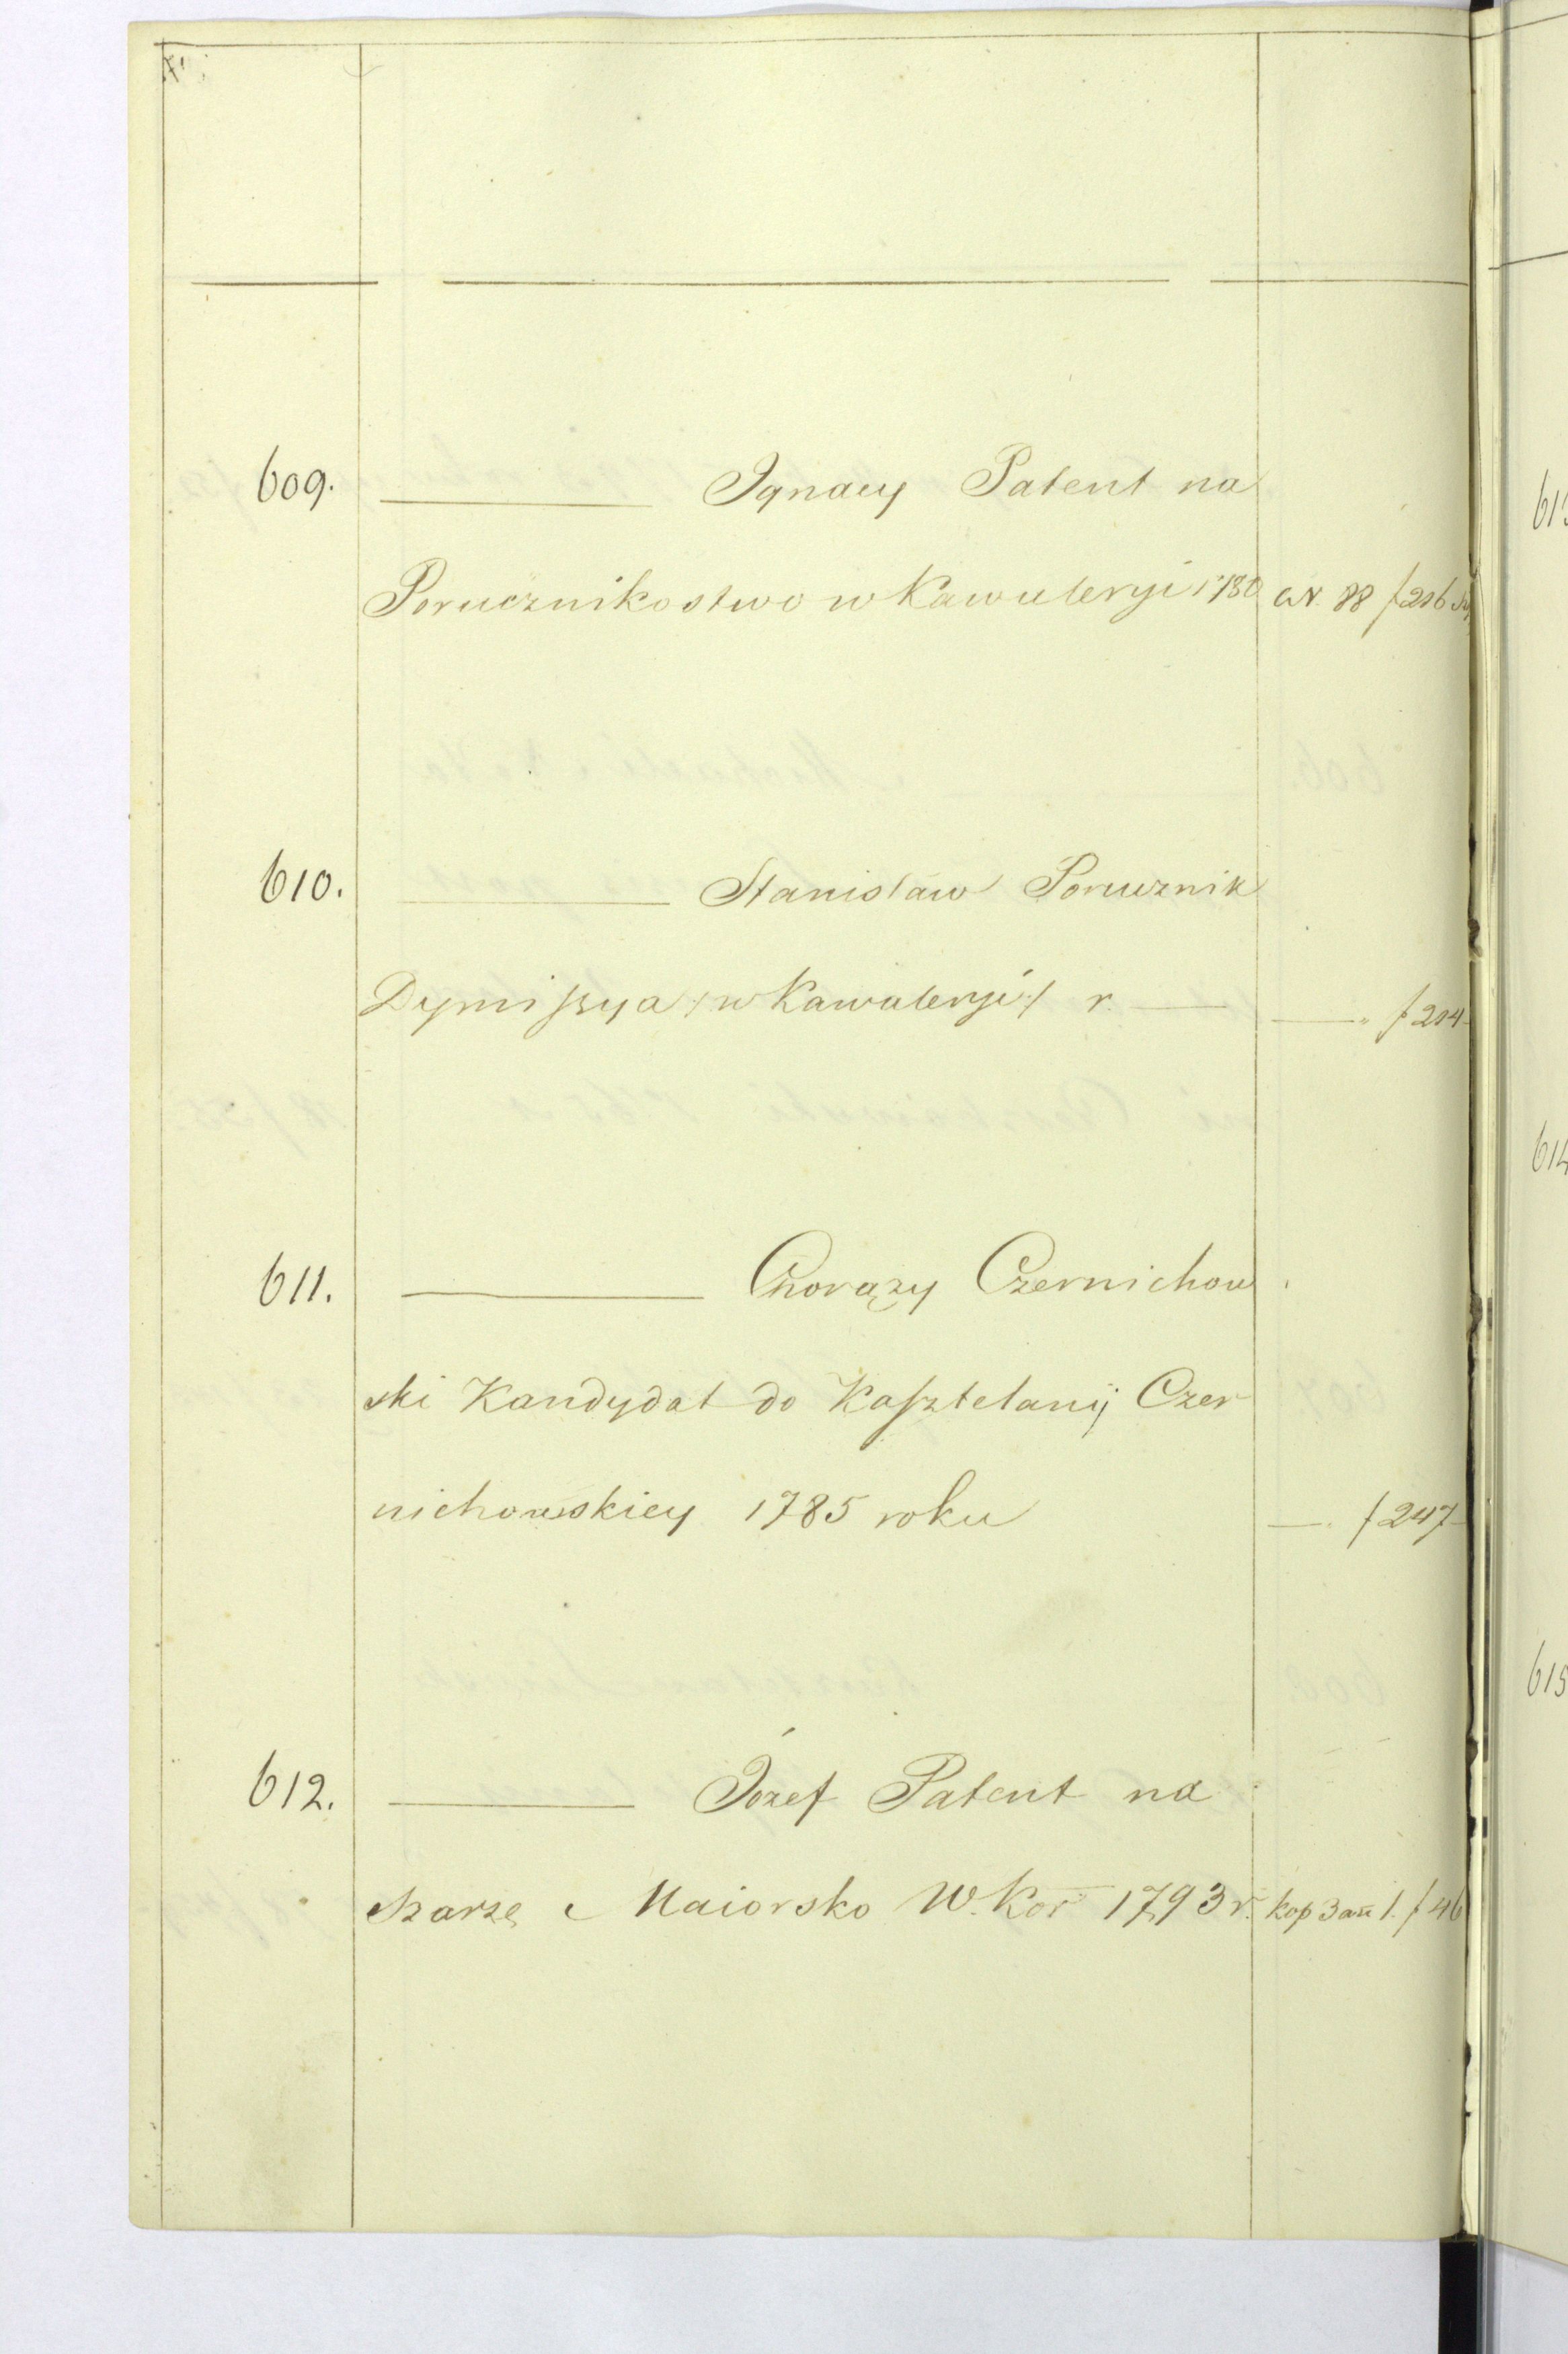 609. ——— Ignacy Patent na
Porucznikostwo w Kawaleryi 1780 W. 88 f 216
610. ——— Stanisław Porucznik
Dymissya /: w Kawaleryi :/ r. — —„ f 214
611. ——— Chorązy Czernichow
ski Kandydat do Kasztelanij Czer
nichowskiey 1785 roku — f 247
612. ——— Józef Patent na
Szarzę Maiorsko W. Kor 1793 r. kop 3 an 1. f 46
613
614
615